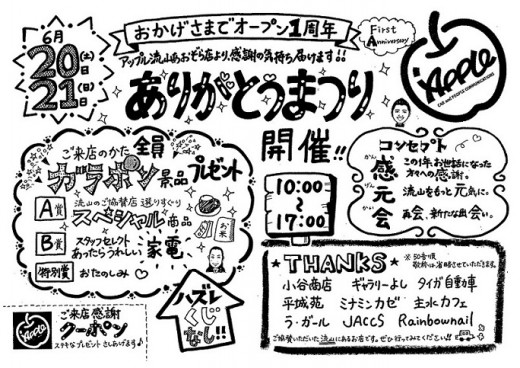 おかげさまでオープン1周年
First Anniversary
6月
20(土)日
21(日)日
アップル流山おおぞら店より、感謝の気持ち届けます!!
ありがとうまつり
Apple
CAR and PEOPLE COMMUNICATIONS
開催!!
10:00
~
17:00
ご来店のかた全員
ガラポン景品プレゼント
A賞
流山のご協賛店 選りすぐり
スペシャル商品
お米
B賞
スタッフセレクト
あったらうれしい家電
特別賞
おたのしみ
ハズレ
くじ
なし!!
コンセプト
感 かん
元 げん
会 かい
この1年お世話になった
方々への感謝。
流山をもっと元気に。
再会、新たな出会い。
THANKS
※50音順
敬称は省略させていただきます。
小谷商店 ギャラリーよし タイガ自動車
平城苑 ミナミンカゼ 主水カフェ
ラ・ガール JACCS Rainbownail
ご協賛いただいた流山にあるお店です。ぜひ行ってみてください!!
Apple
ご来店感謝
クーポン
ステキなプレゼントさしあげます♪